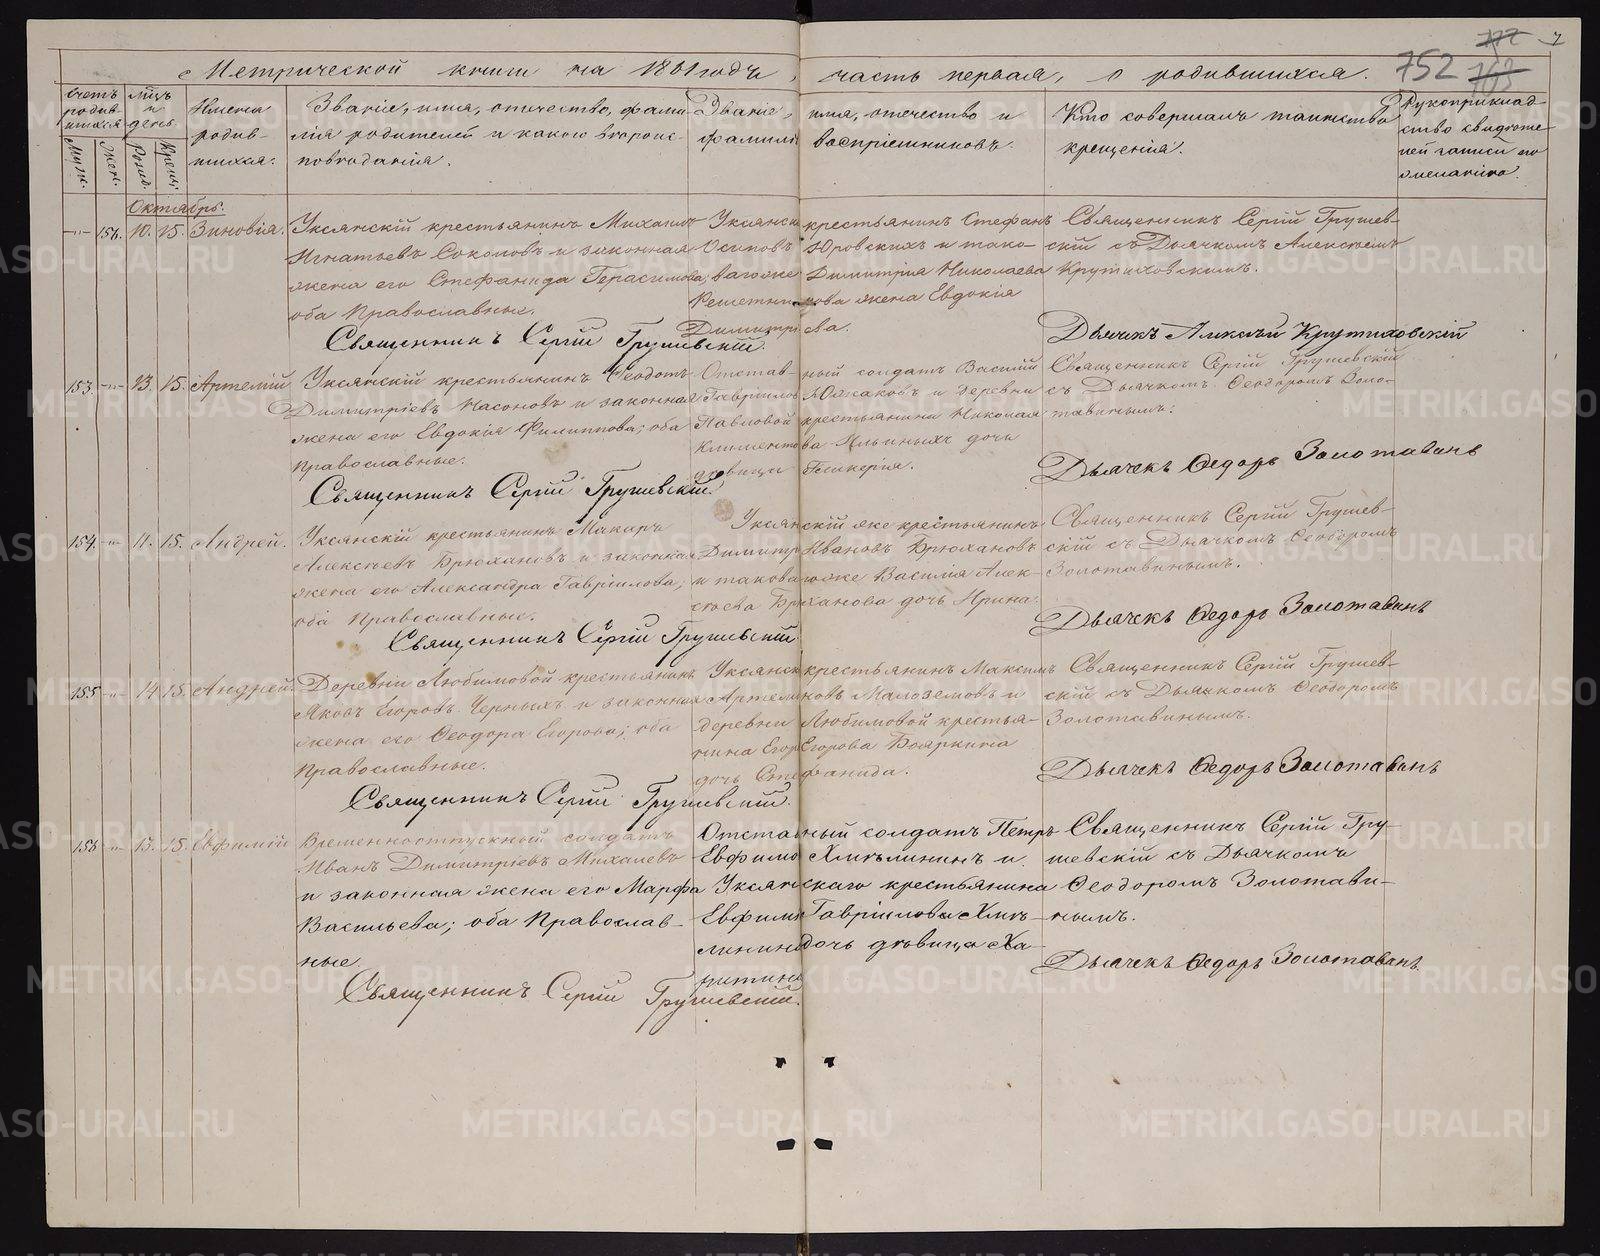 Метрической книги на 1861 годъ, часть первая, о родившихся.
752
Счетъ родив-
шихся
Муж.
Жен.
Мцъ и день
Рожд.
Крещ.
Имена
родив-
шихся.
Званіе, имя, отчество, фами-
лія родителей и какого вѣроис-
повѣданія.
Званіе, имя, отчество и
фамилія воспріемниковъ.
Кто совершалъ таинство
крещенія.
Рукоприклад-
ство свидѣте-
лей записи по
желанію.
Октябрь.
154. 10. 15. Зиновія.
Уксянскій крестьянинъ Михаилъ
Игнатьевъ Соколовъ и законная
жена его Стефанида Герасимова,
оба Православные.
Священникъ Сергій Грушевскій.
Уксянскій крестьянинъ Стефанъ
Осиповъ Юровскихъ и тако-
вагоже Димитрія Николаева
Решетникова жена Евдокія
Димитріева.
Священникъ Сергій Грушев-
скій съ Дьячкомъ Алексѣемъ
Крутиховскимъ.
Дьячекъ Алексѣй Крутиховскій
153. 13. 15. Артемій
Уксянскій крестьянинъ Ѳеодотъ
Димитріевъ Насоновъ и законная
жена его Евдокія Филиппова; оба
Православные.
Священникъ Сергій Грушевскій.
Отстав-ный солдатъ Василій
Гавріиловъ Южаковъ и деревни
Павловой крестьянина Николая
Климентова Ильиныхъ дочь
дѣвица Гликерія.
Священникъ Сергій Грушевскій
съ Дьячкомъ Ѳеодоромъ Золо-
тавинымъ.
Дьячекъ Ѳедоръ Золотавинъ
154. 11. 15. Андрей.
Уксянскій крестьянинъ Макаръ
Алексѣевъ Брюхановъ и законная
жена его Александра Гавріилова;
оба Православные.
Священникъ Сергій Грушевскій
Уксянскій же крестьянинъ
Димитр Ивановъ Брюхановъ
и таковагоже Василія Алек-
сѣева Брюханова дочь Ирина.
Священникъ Сергій Грушев-
скій съ Дьячкомъ Ѳеодоромъ
Золотавинымъ.
Дьячекъ Ѳедоръ Золотавинъ
155 14 15. Андрей
Деревни Любимовой крестьянинъ
Яковъ Егоровъ Черныхъ и законная
жена его Ѳеодора Егорова; оба
Православные.
Священникъ Сергій Грушевскій.
Уксянск крестьянинъ Максимъ
Артемоновъ Малоземовъ и
деревни Любимовой крестья-
нина Егор Егорова Бояркина
дочь Стефанида.
Священникъ Сергій Грушев-
скій съ Дьячкомъ Ѳеодоромъ
Золотавинымъ.
Дьячекъ Ѳедоръ Золотавинъ
156 13. 15. Евфимій
Временноотпускной солдатъ
Иванъ Димитріевъ Михалевъ
и законная жена его Марфа
Васильева; оба Православ-
ные.
Священникъ Сергій Грушевскій.
Отставный солдатъ Петръ
Евфимо Хмѣлининъ и
Уксянскаго крестьянина
Евфимія Гавріилова Хмѣ-
линина дочь дѣвица Ха-
ритина
Священникъ Сергій Гру-
шевскій съ Дьячкомъ
Ѳеодоромъ Золотави-
нымъ.
Дьячекъ Ѳедоръ Золотавинъ.
METRIKI.GASO-URAL.RU